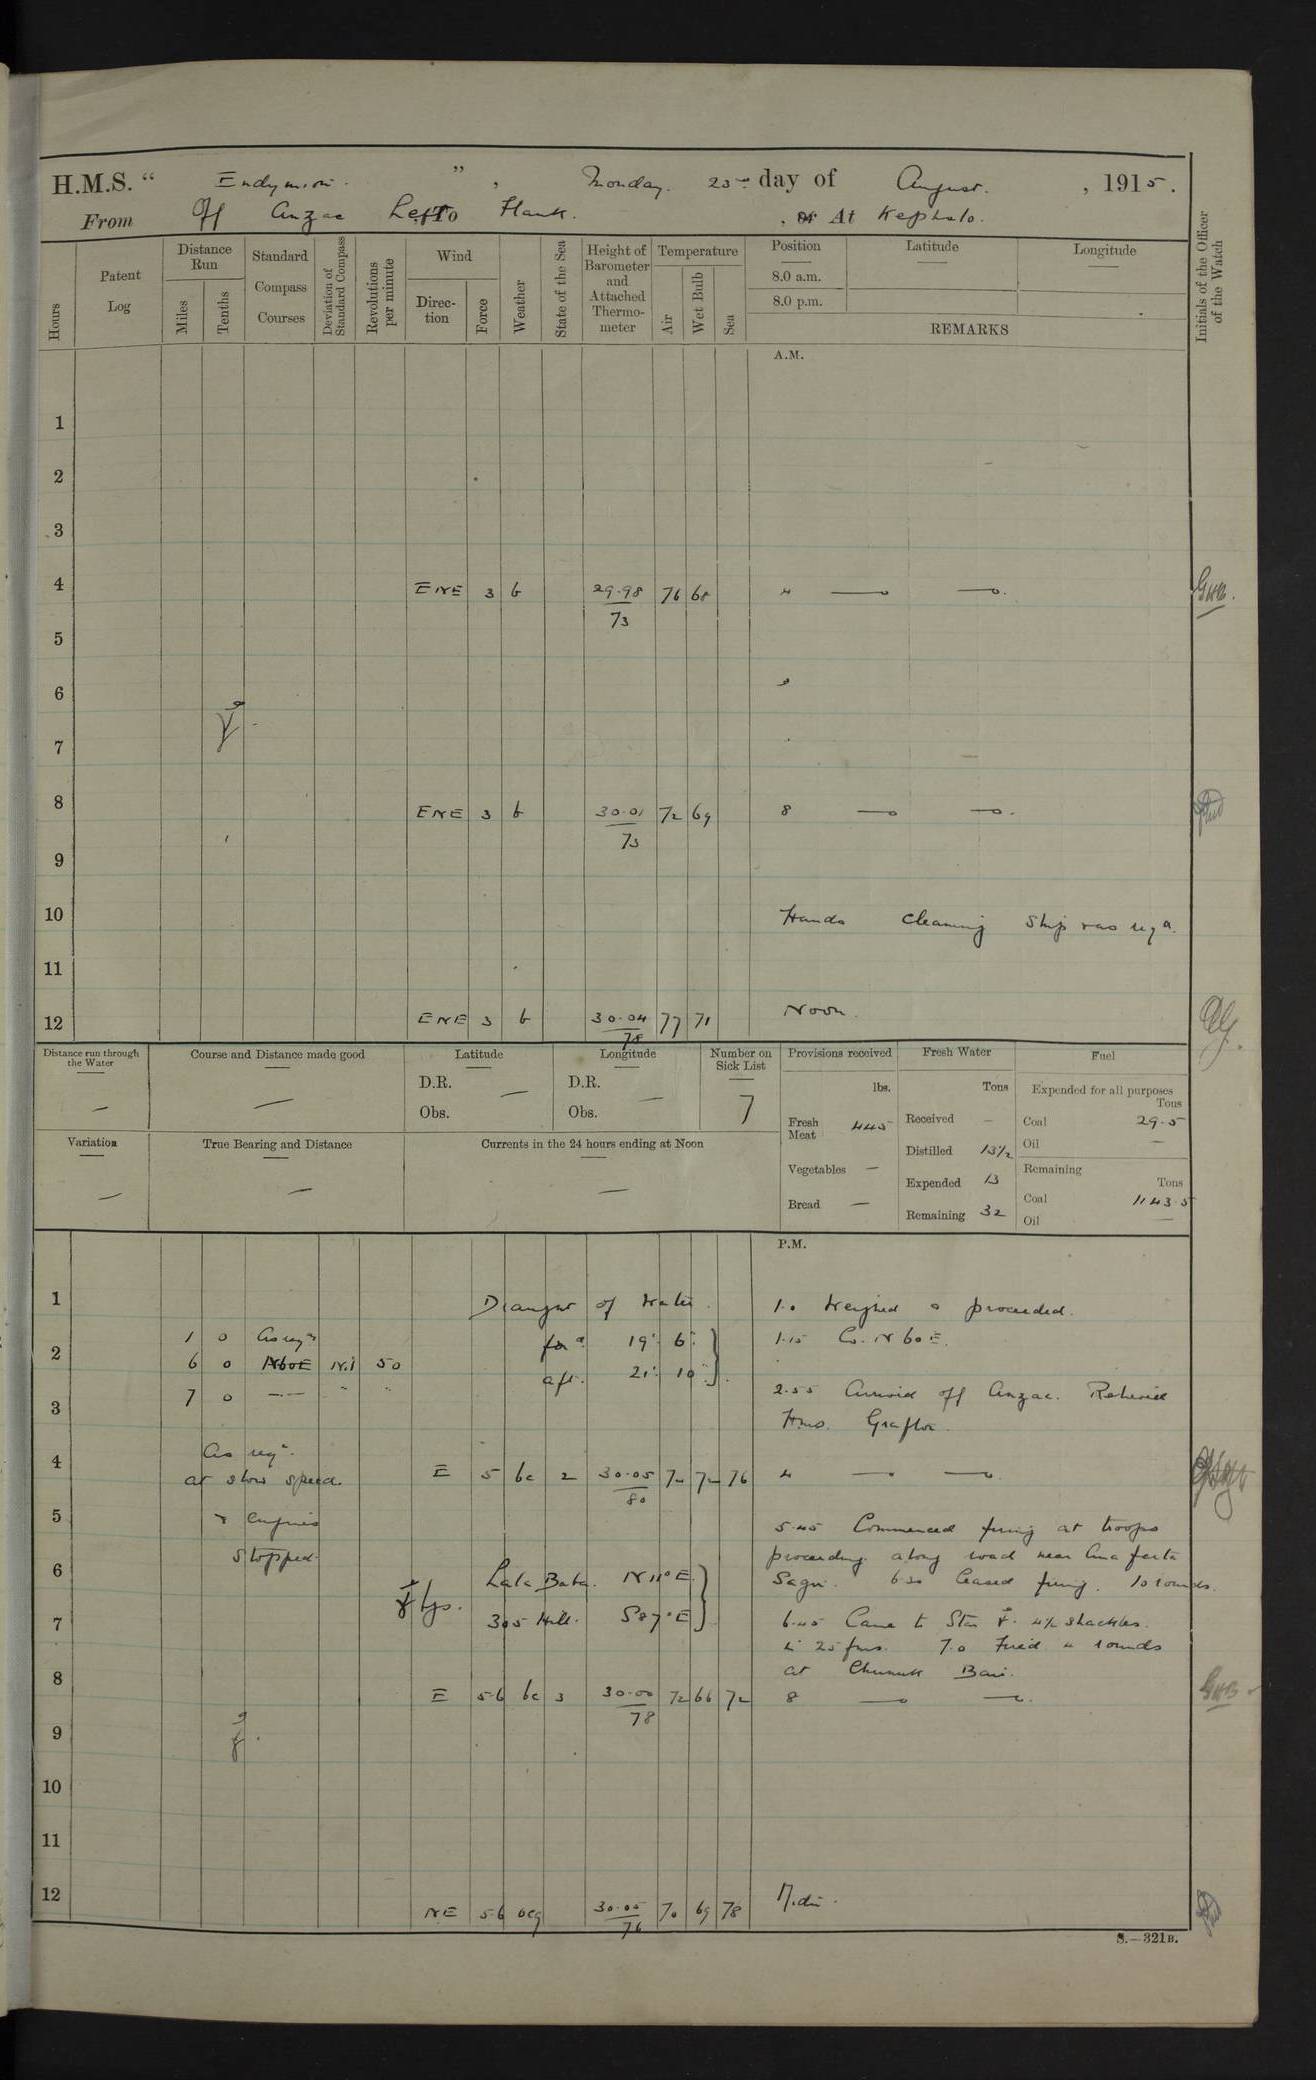 H.M.S. “ Endymion ” , Monday. 23rd day of August. , 1915.
From Off Anzac Left To Flank. , or At Kephalo.
Hours
Patent Log
Distance Run
Miles
Tenths
Standard Compass Courses
Deviation of Standard Compass
Revolutions per minute
Wind
Direction
Force
Weather
State of the Sea
Height of Barometer and Attached Thermometer
Temperature
Air
Wet Bulb
Sea
Position
8.0 a.m.
8.0 p.m.
Latitude
Longitude
REMARKS
Initials of the Officer of the Watch
A.M.
1
2
3
4 ENE 3 b 29.98 76 68 4 — —
73
5
6
7
8 ENE 3 b 30.01 72 69 8 — —
73
9
10 Hands cleaning Ship & as reqd.
11
12 ENE 3 b 30.04 77 71 Noon.
78
Distance run through the Water
—
Course and Distance made good
—
Latitude
D.R. —
Obs.
Longitude
D.R. —
Obs.
Number on Sick List
7
Provisions received
lbs.
Fresh Meat 445
Vegetables —
Bread —
Fresh Water
Tons
Received —
Distilled 13½
Expended 13
Remaining 32
Fuel
Expended for all purposes
Tons
Coal 29.5
Oil —
Remaining
Tons
Coal 1143.5
Oil —
Variation
—
True Bearing and Distance
—
Currents in the 24 hours ending at Noon
—
P.M.
1 Draught of Water. 1.0 Weighed & proceeded.
1 0 As reqd for'd 19' 6" 1.15 Co. N 60 E.
2 6 0 N60E Nil 50 aft. 21' 10"
7 0 — " " 2.55 Arrived off Anzac. Relieved
3 Hms. Grafton.
As reqd.
4 at slow speed. E 5 bc 2 30.05 72 72 76 4 — —
80
5 & engines 5.45 Commenced firing at troops
stopped. proceeding along road near Anafarta
6 Lala Baba. N 11° E. Sagir. 6.30 Ceased firing. 10 rounds.
bgs. 305 Hill. S 87° E
7 6.45 Came to Star. 4½ shackles.
in 25 fms. 7.0 Fired 4 rounds
8 at Chunuk Bair.
E 5-6 bc 3 30.00 72 66 72 8 — —
78
9
10
11
12 NE 5-6 ocq 30.05 70 69 78 Midt.
76
S.—321B.